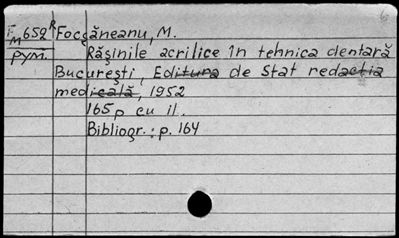 F M 652 R Focşăneanu, M.
Răşinile acrilice în tehnica dentară
PYM.
Bucureşti, Editura de Stat redacţia
medicală, 1952
165 p cu il.
Bibliogr.: p. 164